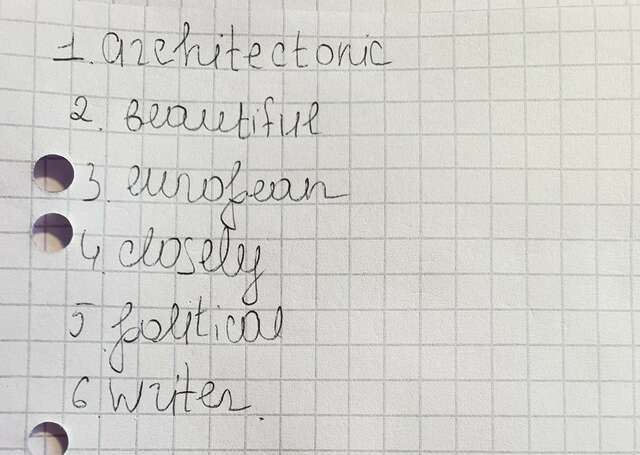 1. architectonic
2. beautiful
3. european
4. closely
5 political
6. writer.